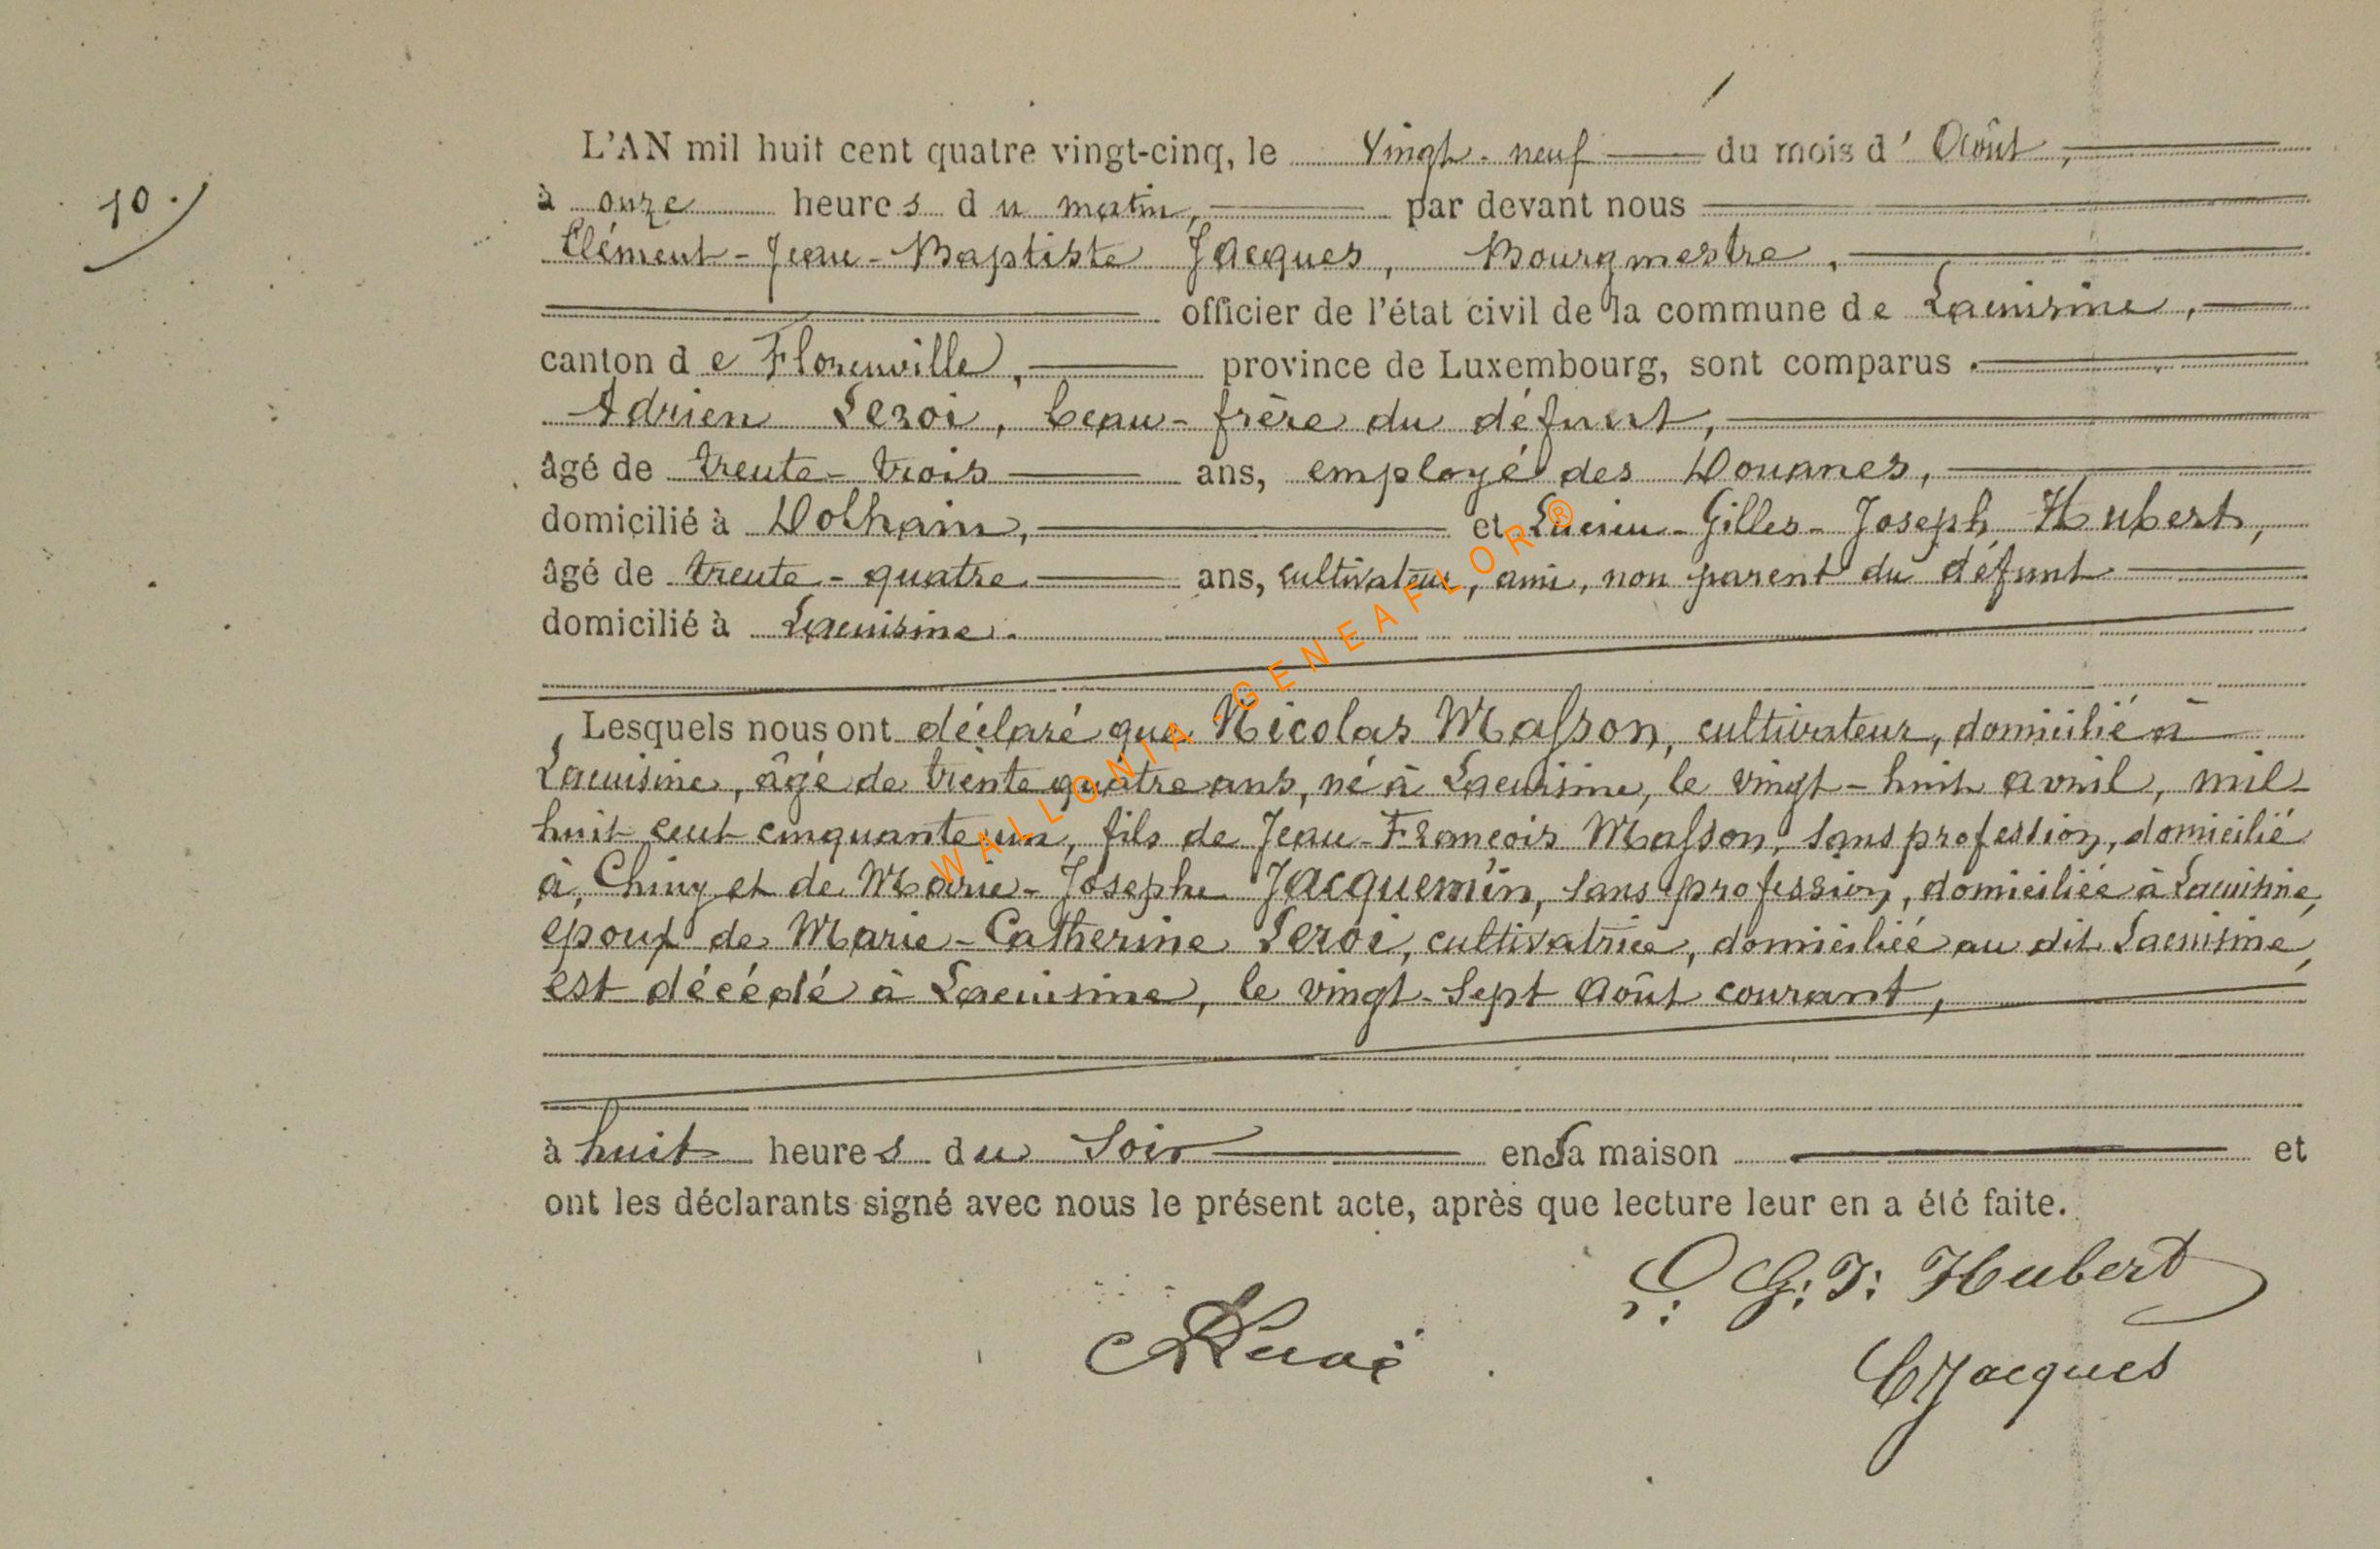 10.
L'AN mil huit cent quatre vingt-cinq, le Vingt-neuf du mois d'Août,
à onze heures du matin, par devant nous
Clément-Jean-Baptiste Jacques, Bourgmestre,
officier de l'état civil de la commune de Lacuisine,
canton de Florenville, province de Luxembourg, sont comparus
Adrien Leroi, beau-frère du défunt,
âgé de trente-trois ans, employé des Douanes,
domicilié à Dolhain, et Lucien-Gilles-Joseph Hubert,
âgé de trente-quatre ans, cultivateur, ami, non parent du défunt
domicilié à Lacuisine.
Lesquels nous ont déclaré que Nicolas Masson, cultivateur, domicilié à
Lacuisine, âgé de trente quatre ans, né à Lacuisine, le vingt-huit avril, mil
huit cent cinquante un, fils de Jean-François Masson, sans profession, domicilié
à Chiny et de Marie-Josephe Jacquemin, sans profession, domiciliée à Lacuisine,
époux de Marie-Catherine Leroi, cultivatrice, domiciliée au dit Lacuisine,
est décédé à Lacuisine, le vingt-sept août courant,
à huit heures du soir en sa maison et
ont les déclarants signé avec nous le présent acte, après que lecture leur en a été faite.
L. G. J. Hubert
ALeroi
CJJacques
WALLONIA-GENEAFLOR®